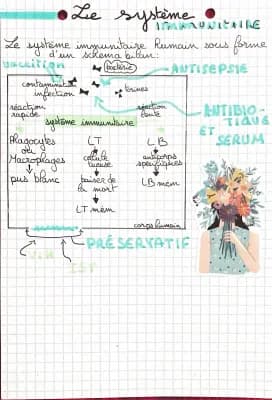 Le système
IMMUNITAIRE
Le système immunitaire humain sous forme
d'un schéma bilan:
VACCITION
bactérie
ANTISEPSIE
contamination
infection
toxines
réaction rapide
réaction lente
ANTIBIO-
TIQUE
ET
SERUM
système immunitaire
Phagocytes
ou
Macrophages
LT
LB
cellule
tueuse
anticorps
spécifiques
pus blanc
baiser de
la mort
LB mém
LT mém
corps humain
PRÉSERVATIF
VIH
IST